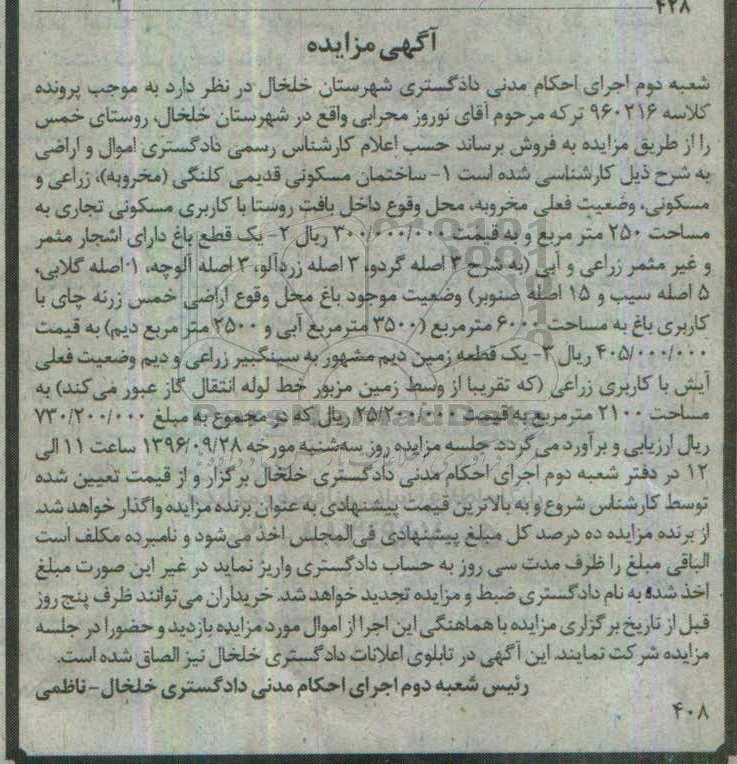 ۴۲۸
آگهی مزایده
شعبه دوم اجرای احکام مدنی دادگستری شهرستان خلخال در نظر دارد به موجب پرونده
کلاسه ۹۶۰۲۱۶ ترکه مرحوم آقای نوروز محرابی واقع در شهرستان خلخال، روستای خمس
را از طریق مزایده به فروش برساند حسب اعلام کارشناس رسمی دادگستری اموال و اراضی
به شرح ذیل کارشناسی شده است ۱- ساختمان مسکونی قدیمی کلنگی (مخروبه)، زراعی و
مسکونی، وضعیت فعلی مخروبه، محل وقوع داخل بافت روستا با کاربری مسکونی تجاری به
مساحت ۲۵۰ متر مربع و به قیمت ۳۰۰/۰۰۰/۰۰۰ ریال ۲- یک قطع باغ دارای اشجار مثمر
و غیر مثمر زراعی و آبی (به شرح ۳ اصله گردو، ۳ اصله زردآلو، ۳ اصله آلوچه، ۱۰اصله گلابی،
۵ اصله سیب و ۱۵ اصله صنوبر) وضعیت موجود باغ محل وقوع اراضی خمس زرنه چای با
کاربری باغ به مساحت ۶۰۰۰ مترمربع (۳۵۰۰ مترمربع آبی و ۲۵۰۰ متر مربع دیم) به قیمت
۴۰۵/۰۰۰/۰۰۰ ریال ۳- یک قطعه زمین دیم مشهور به سینگبیر زراعی و دیم وضعیت فعلی
آیش با کاربری زراعی (که تقریبا از وسط زمین مزبور خط لوله انتقال گاز عبور می‌کند) به
مساحت ۲۱۰۰ مترمربع به قیمت ۲۵/۲۰۰/۰۰۰ ریال که در مجموع به مبلغ ۷۳۰/۲۰۰/۰۰۰
ریال ارزیابی و برآورد می‌گردد. جلسه مزایده روز سه‌شنبه مورخه ۱۳۹۶/۰۹/۲۸ ساعت ۱۱ الی
۱۲ در دفتر شعبه دوم اجرای احکام مدنی دادگستری خلخال برگزار و از قیمت تعیین شده
توسط کارشناس شروع و به بالاترین قیمت پیشنهادی به عنوان برنده مزایده واگذار خواهد شد.
از برنده مزایده ده درصد کل مبلغ پیشنهادی فی‌المجلس اخذ می‌شود و نامبرده مکلف است
الباقی مبلغ را ظرف مدت سی روز به حساب دادگستری واریز نماید در غیر این صورت مبلغ
اخذ شده به نام دادگستری ضبط و مزایده تجدید خواهد شد. خریداران می‌توانند ظرف پنج روز
قبل از تاریخ برگزاری مزایده با هماهنگی این اجرا از اموال مورد مزایده بازدید و حضورا در جلسه
مزایده شرکت نمایند. این آگهی در تابلوی اعلانات دادگستری خلخال نیز الصاق شده است.
رئیس شعبه دوم اجرای احکام مدنی دادگستری خلخال- ناظمی
۴۰۸